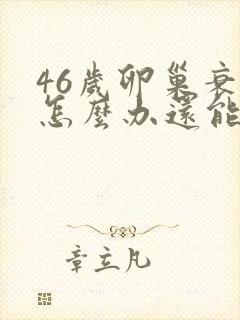 46歲卵巢衰
怎麼办還能
章立凡